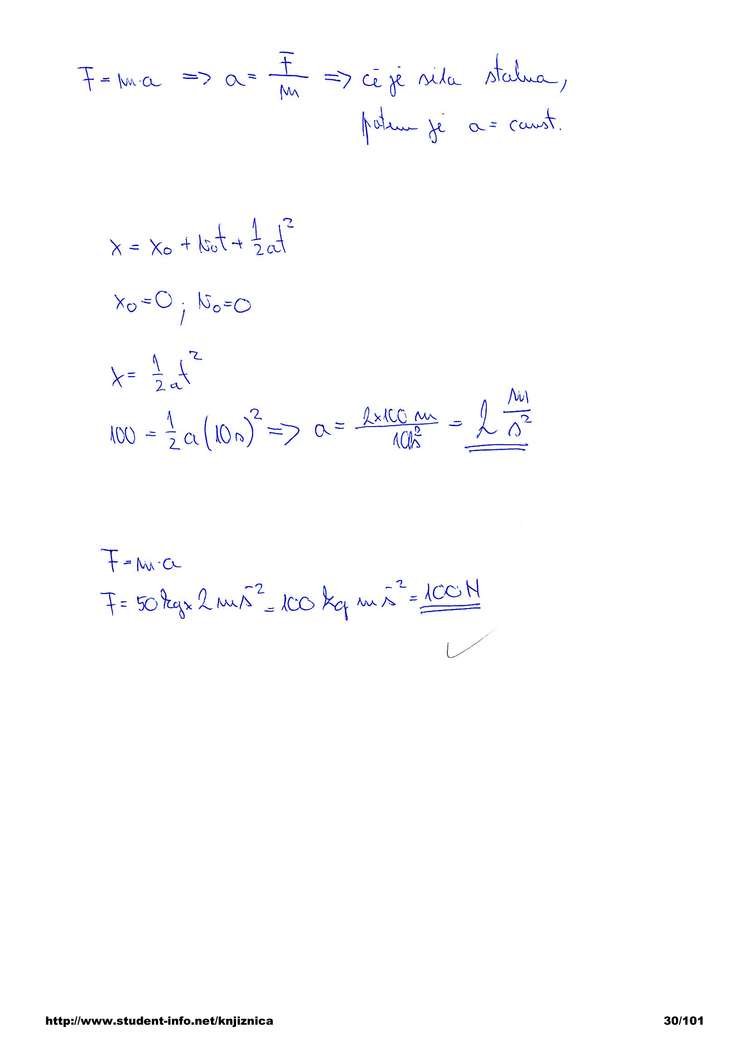 F = m·a => a = F/m => če je sila stalna,
potem je a = const.
x = x₀ + v₀t + 1/2 at²
x₀ = 0 ; v₀ = 0
x = 1/2 at²
100 = 1/2 a (10s)² => a = 2×100 m / 10²s² = 2 m/s²
F = m·a
F = 50 kg × 2 ms⁻² = 100 kg ms⁻² = 100 N
http://www.student-info.net/knjiznica 30/101